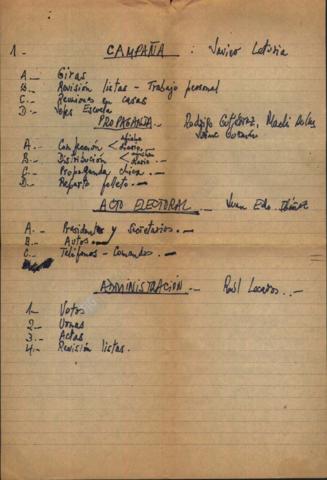 1.- CAMPAÑA : Javier Leturia
A.- Giras
B.- Revisión listas - Trabajo personal
C.- Reuniones en casas
D.- Jefes Escuela
PROPAGANDA.- Rodrigo
A.- Confección < afiches diario.-
B.- Distribución < afiches diario
C.- Propaganda chica.-
D.- Reparto folleto.-
ACTO ELECTORAL.- Juan Edo. Ibáñez
A.- Presidentes y Secretarios.-
B.- Autos.-
C.- Teléfonos - Comandos.-
ADMINISTRACIÓN.- Raúl
1.- Votos
2.- Urnas
3.- Actas
4.- Revisión listas.